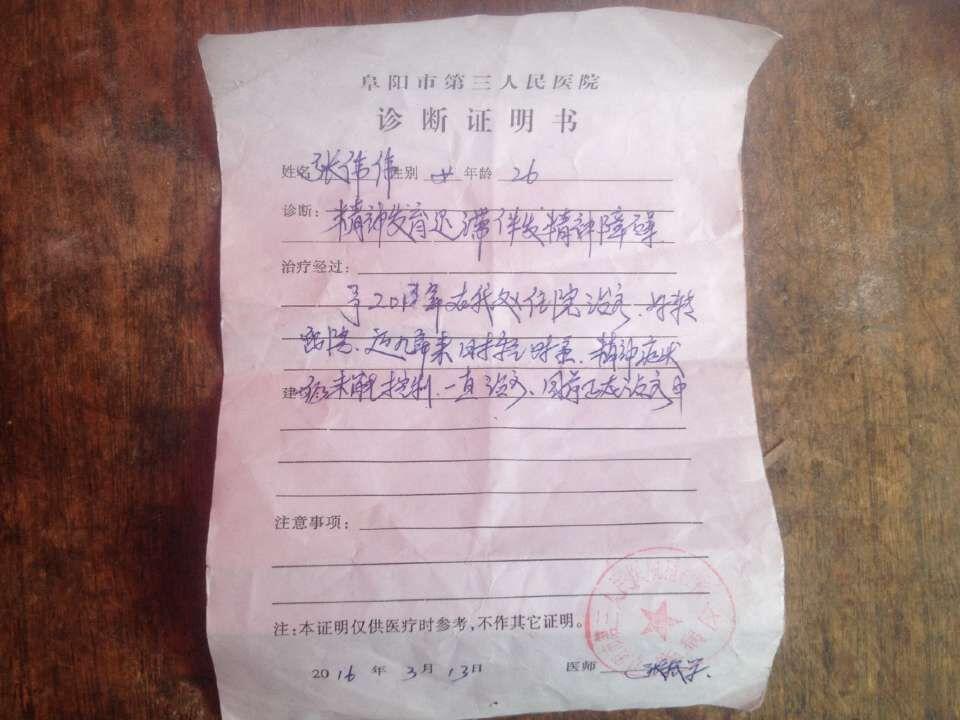 阜阳市第三人民医院
诊断证明书
姓名 张伟伟 性别 女 年龄 26
诊断: 精神发育迟滞伴发精神障碍
治疗经过:
于20 年在我处住院治疗、好转
出院、近几年来时轻时重、精神症状
建 未能控制、一直治疗、目前正在治疗中
注意事项:
注:本证明仅供医疗时参考,不作其它证明。
2016 年 3 月 13 日 医师 张